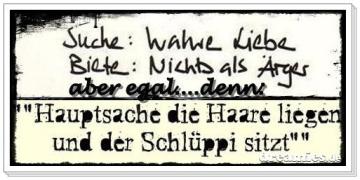 Suche: Wahre Liebe
Biete: Nichts als Ärger
aber egal....denn:
""Hauptsache die Haare liegen
und der Schlüppi sitzt""
dreamies.de